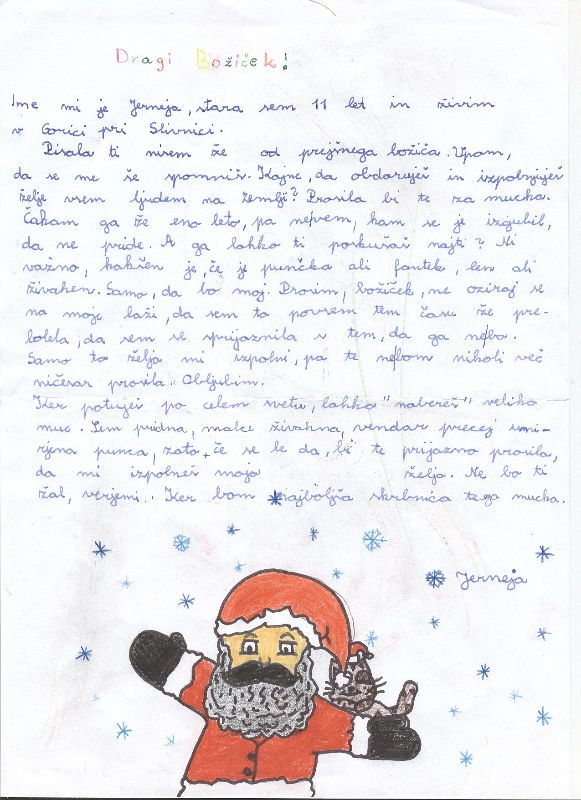 Dragi Božiček!
Ime mi je Jerneja, stara sem 11 let in živim
v Gorici pri Slivnici.
Pisala ti nisem že od prejšnega božiča. Upam,
da se me še spomniš. Kajne, da obdaruješ in izpolnjuješ
želje vsem ljudem na Zemlji? Prosila bi te za mucka.
Čakam ga že eno leto, pa nevem, kam se je izgubil,
da ne pride. A ga lahko ti poskušaš najti? Ni
važno, kakšen je, če je punčka ali fantek, len ali
živahen. Samo, da bo moj. Prosim, božiček, ne oziraj se
na moje laži, da sem to povsem tem času že pre-
bolela, da sem se sprijaznila s tem, da ga nebo.
Samo to željo mi izpolni, pa te nebom nikoli več
ničesar prosila. Obljubim.
Ker potuješ po celem svetu, lahko "nabereš" veliko
muc. Sem pridna, malce živahna, vendar precej umi-
rjena punca, zato, če se le da, bi te prijazno prosila,
da mi izpolneš mojo željo. Ne bo ti
žal, verjemi. Ker bom najboljša skrbnica tega mucka.
Jerneja